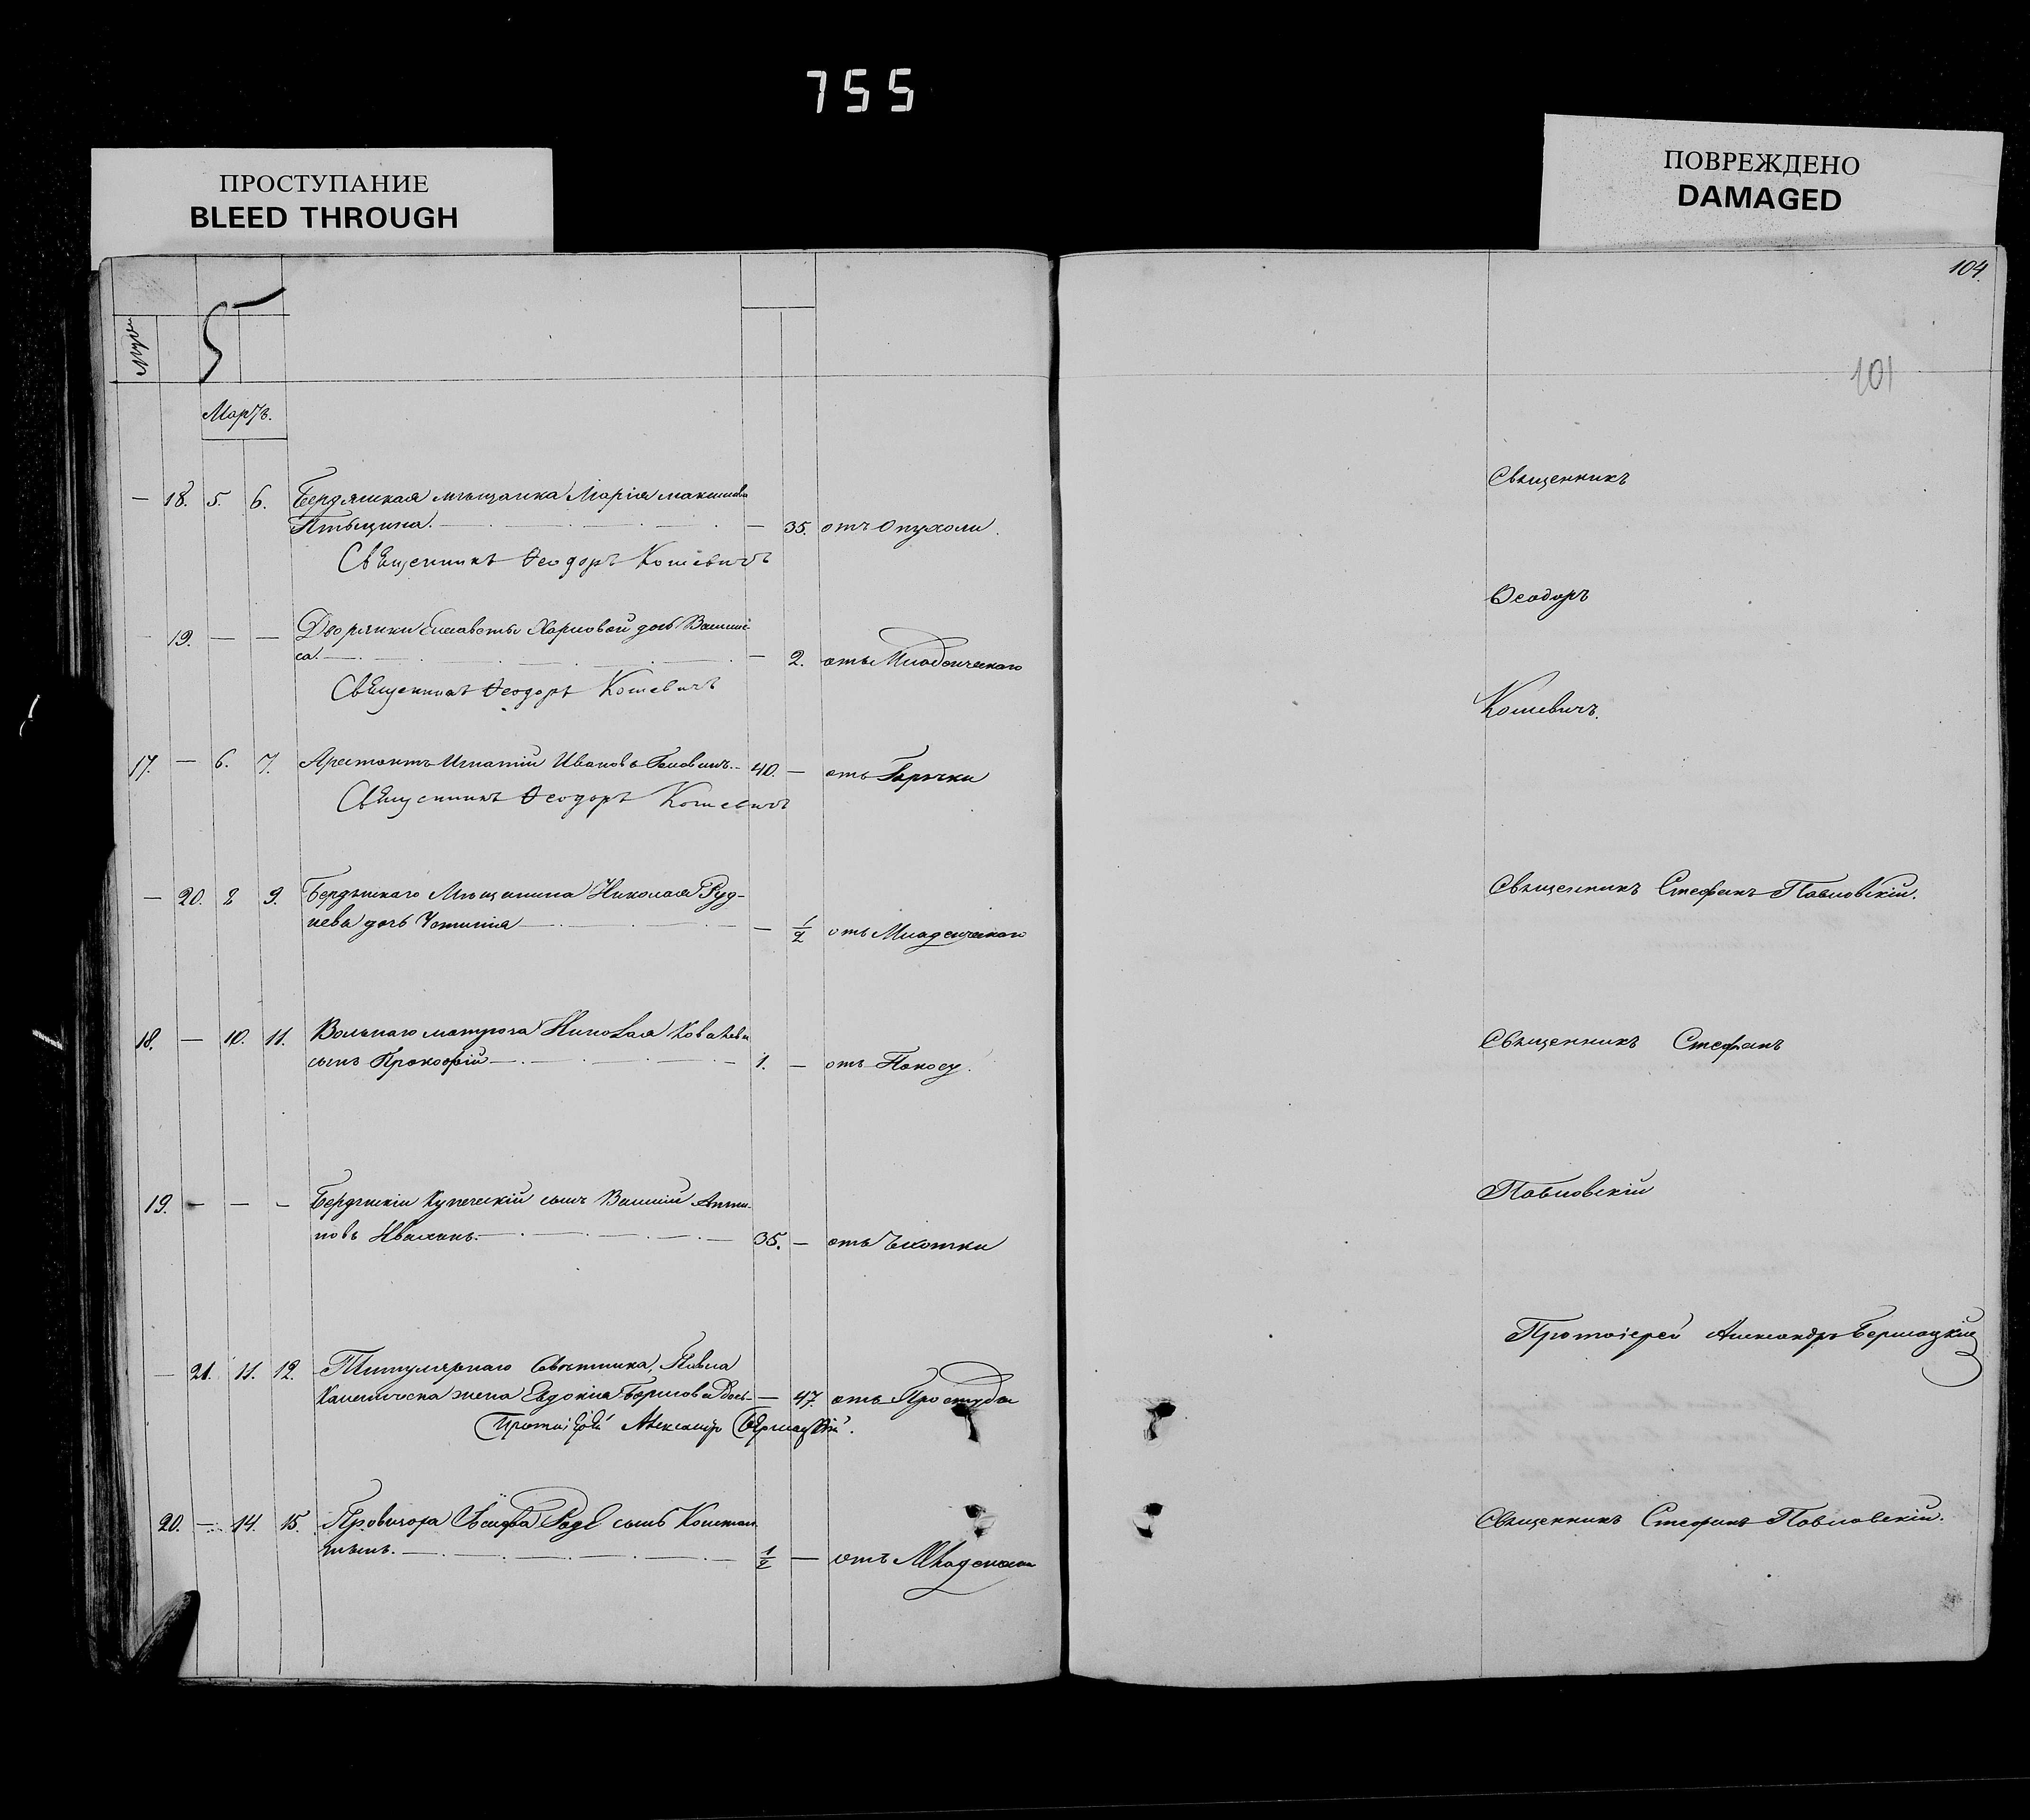 755
ПРОСТУПАНИЕ
BLEED THROUGH
ПОВРЕЖДЕНО
DAMAGED
104.
101
5
Мартъ.
— 18. 5. 6. Бердянская мѣщанка Марія Максимова
— 35. отъ Опухоли.
Священникъ Ѳеодоръ Кошевичъ
— 19. — — Дворянки Елисаветы Карповой дочь Васили-
са. — 2. отъ Младенческаго
Священникъ Ѳеодоръ Кошевичъ
17. — 6. 7. Арестантъ Игнатій Ивановъ 40. — отъ Горячки
Священникъ Ѳеодоръ Кошевичъ
— 20. 8 9. Бердянскаго Мѣщанина Николая Руд-
нева дочь — 1/2 отъ Младенческаго
18. — 10. 11. Вольнаго матроса Николая Ковалева
сынъ Прокофій 1. — отъ Поносу.
19. — — — Бердянскій Купеческій сынъ Василій Анти-
повъ 35. — отъ Чахотки
— 21. 11. 12. Титулярнаго Совѣтника, Павла
жена Евдокія — 47. отъ Простуды
Протоіерей Александръ
20. — 14. 15. Провизора сынъ Констан-
тинъ. 1/2 — отъ
Священникъ
Ѳеодоръ
Кошевичъ.
Священникъ Стефанъ Павловскій.
Священникъ Стефанъ
Павловскій
Протоіерей Александръ
Священникъ Стефанъ Павловскій.